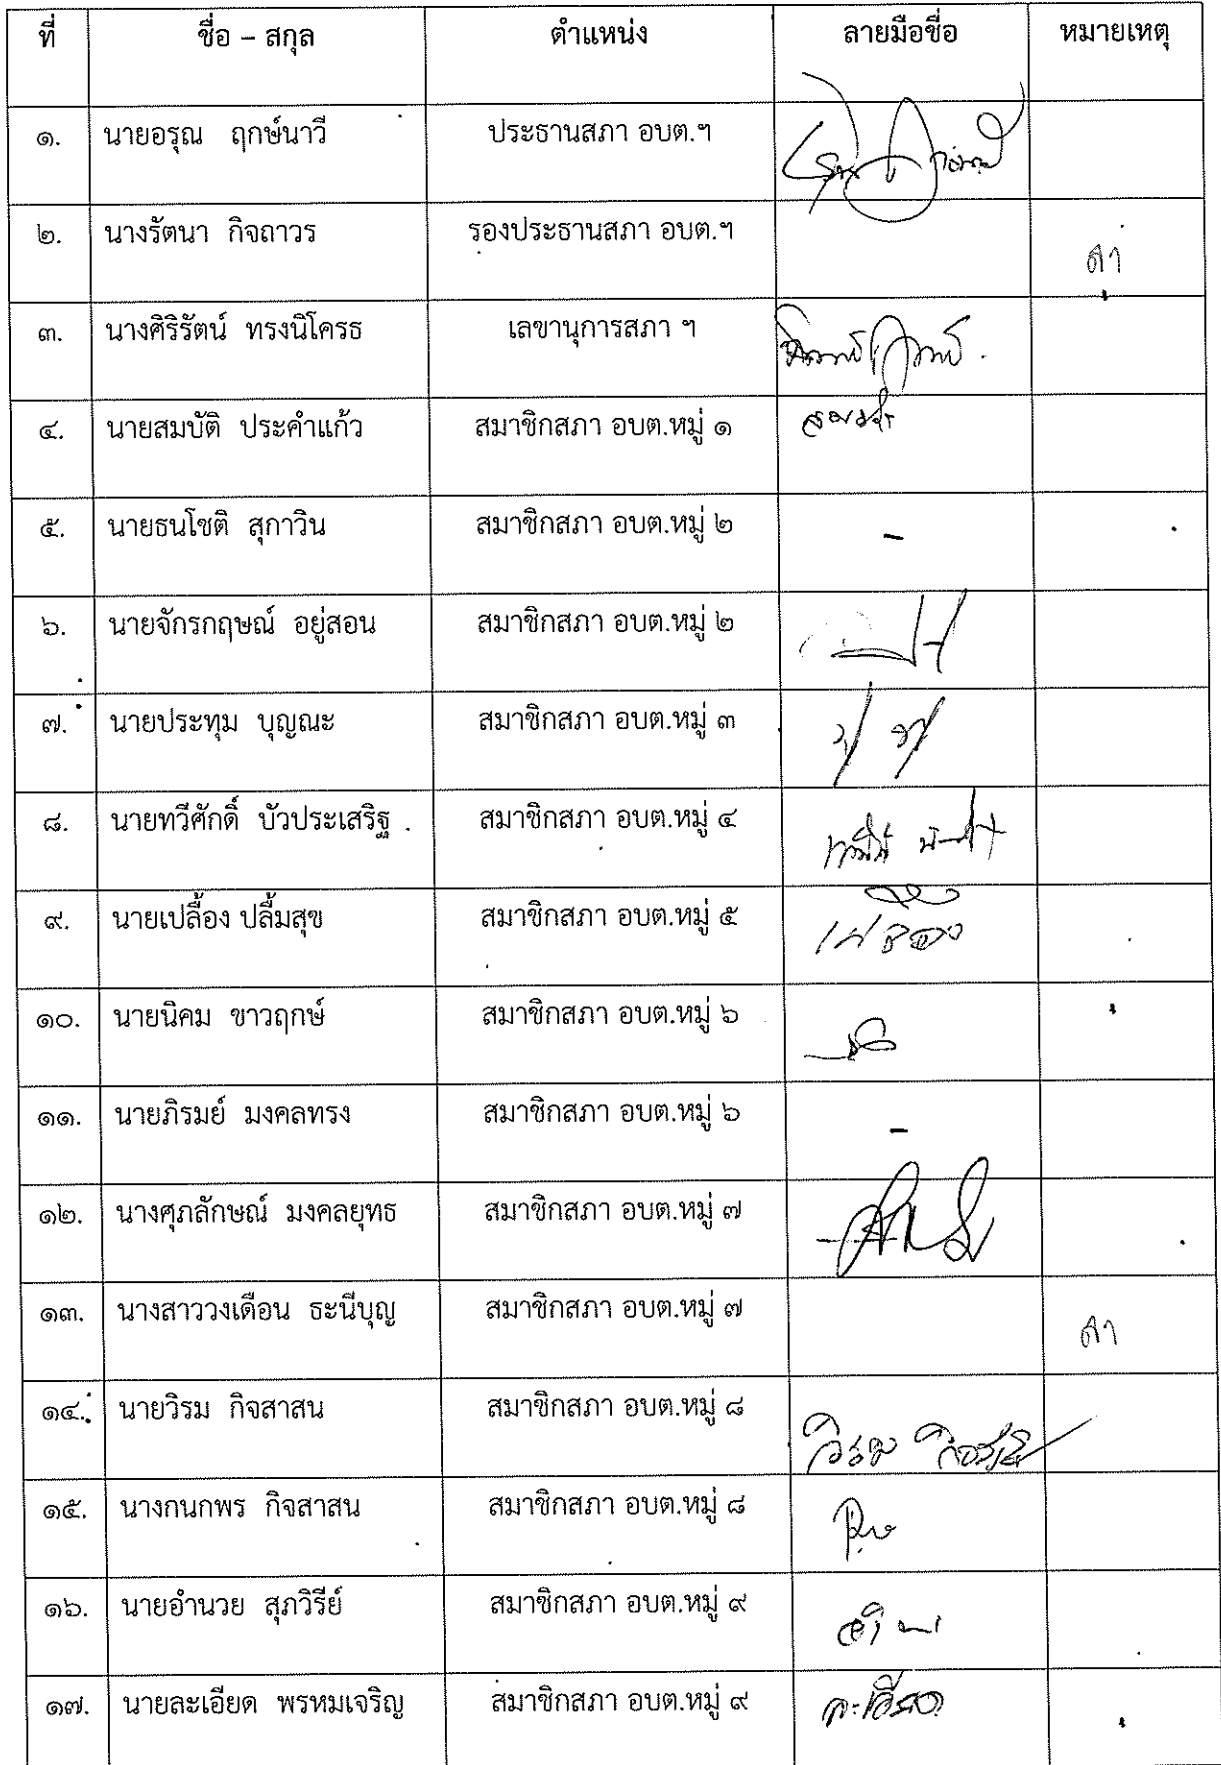 ที่ ชื่อ – สกุล ตำแหน่ง ลายมือชื่อ หมายเหตุ
๑. นายอรุณ ฤกษ์นาวี ประธานสภา อบต.ฯ
๒. นางรัตนา กิจถาวร รองประธานสภา อบต.ฯ ลา
๓. นางศิริรัตน์ ทรงนิโครธ เลขานุการสภา ฯ
๔. นายสมบัติ ประคำแก้ว สมาชิกสภา อบต.หมู่ ๑
๕. นายธนโชติ สุกาวิน สมาชิกสภา อบต.หมู่ ๒ -
๖. นายจักรกฤษณ์ อยู่สอน สมาชิกสภา อบต.หมู่ ๒
๗. นายประทุม บุญณะ สมาชิกสภา อบต.หมู่ ๓
๘. นายทวีศักดิ์ บัวประเสริฐ สมาชิกสภา อบต.หมู่ ๔
๙. นายเปลื้อง ปลื้มสุข สมาชิกสภา อบต.หมู่ ๕
๑๐. นายนิคม ขาวฤกษ์ สมาชิกสภา อบต.หมู่ ๖
๑๑. นายภิรมย์ มงคลทรง สมาชิกสภา อบต.หมู่ ๖ -
๑๒. นางศุภลักษณ์ มงคลยุทธ สมาชิกสภา อบต.หมู่ ๗
๑๓. นางสาววงเดือน ธะนีบุญ สมาชิกสภา อบต.หมู่ ๗ ลา
๑๔. นายวิรม กิจสาสน สมาชิกสภา อบต.หมู่ ๘ วิรม กิจสาสน
๑๕. นางกนกพร กิจสาสน สมาชิกสภา อบต.หมู่ ๘
๑๖. นายอำนวย สุภวิรีย์ สมาชิกสภา อบต.หมู่ ๙
๑๗. นายละเอียด พรหมเจริญ สมาชิกสภา อบต.หมู่ ๙ ละเอียด